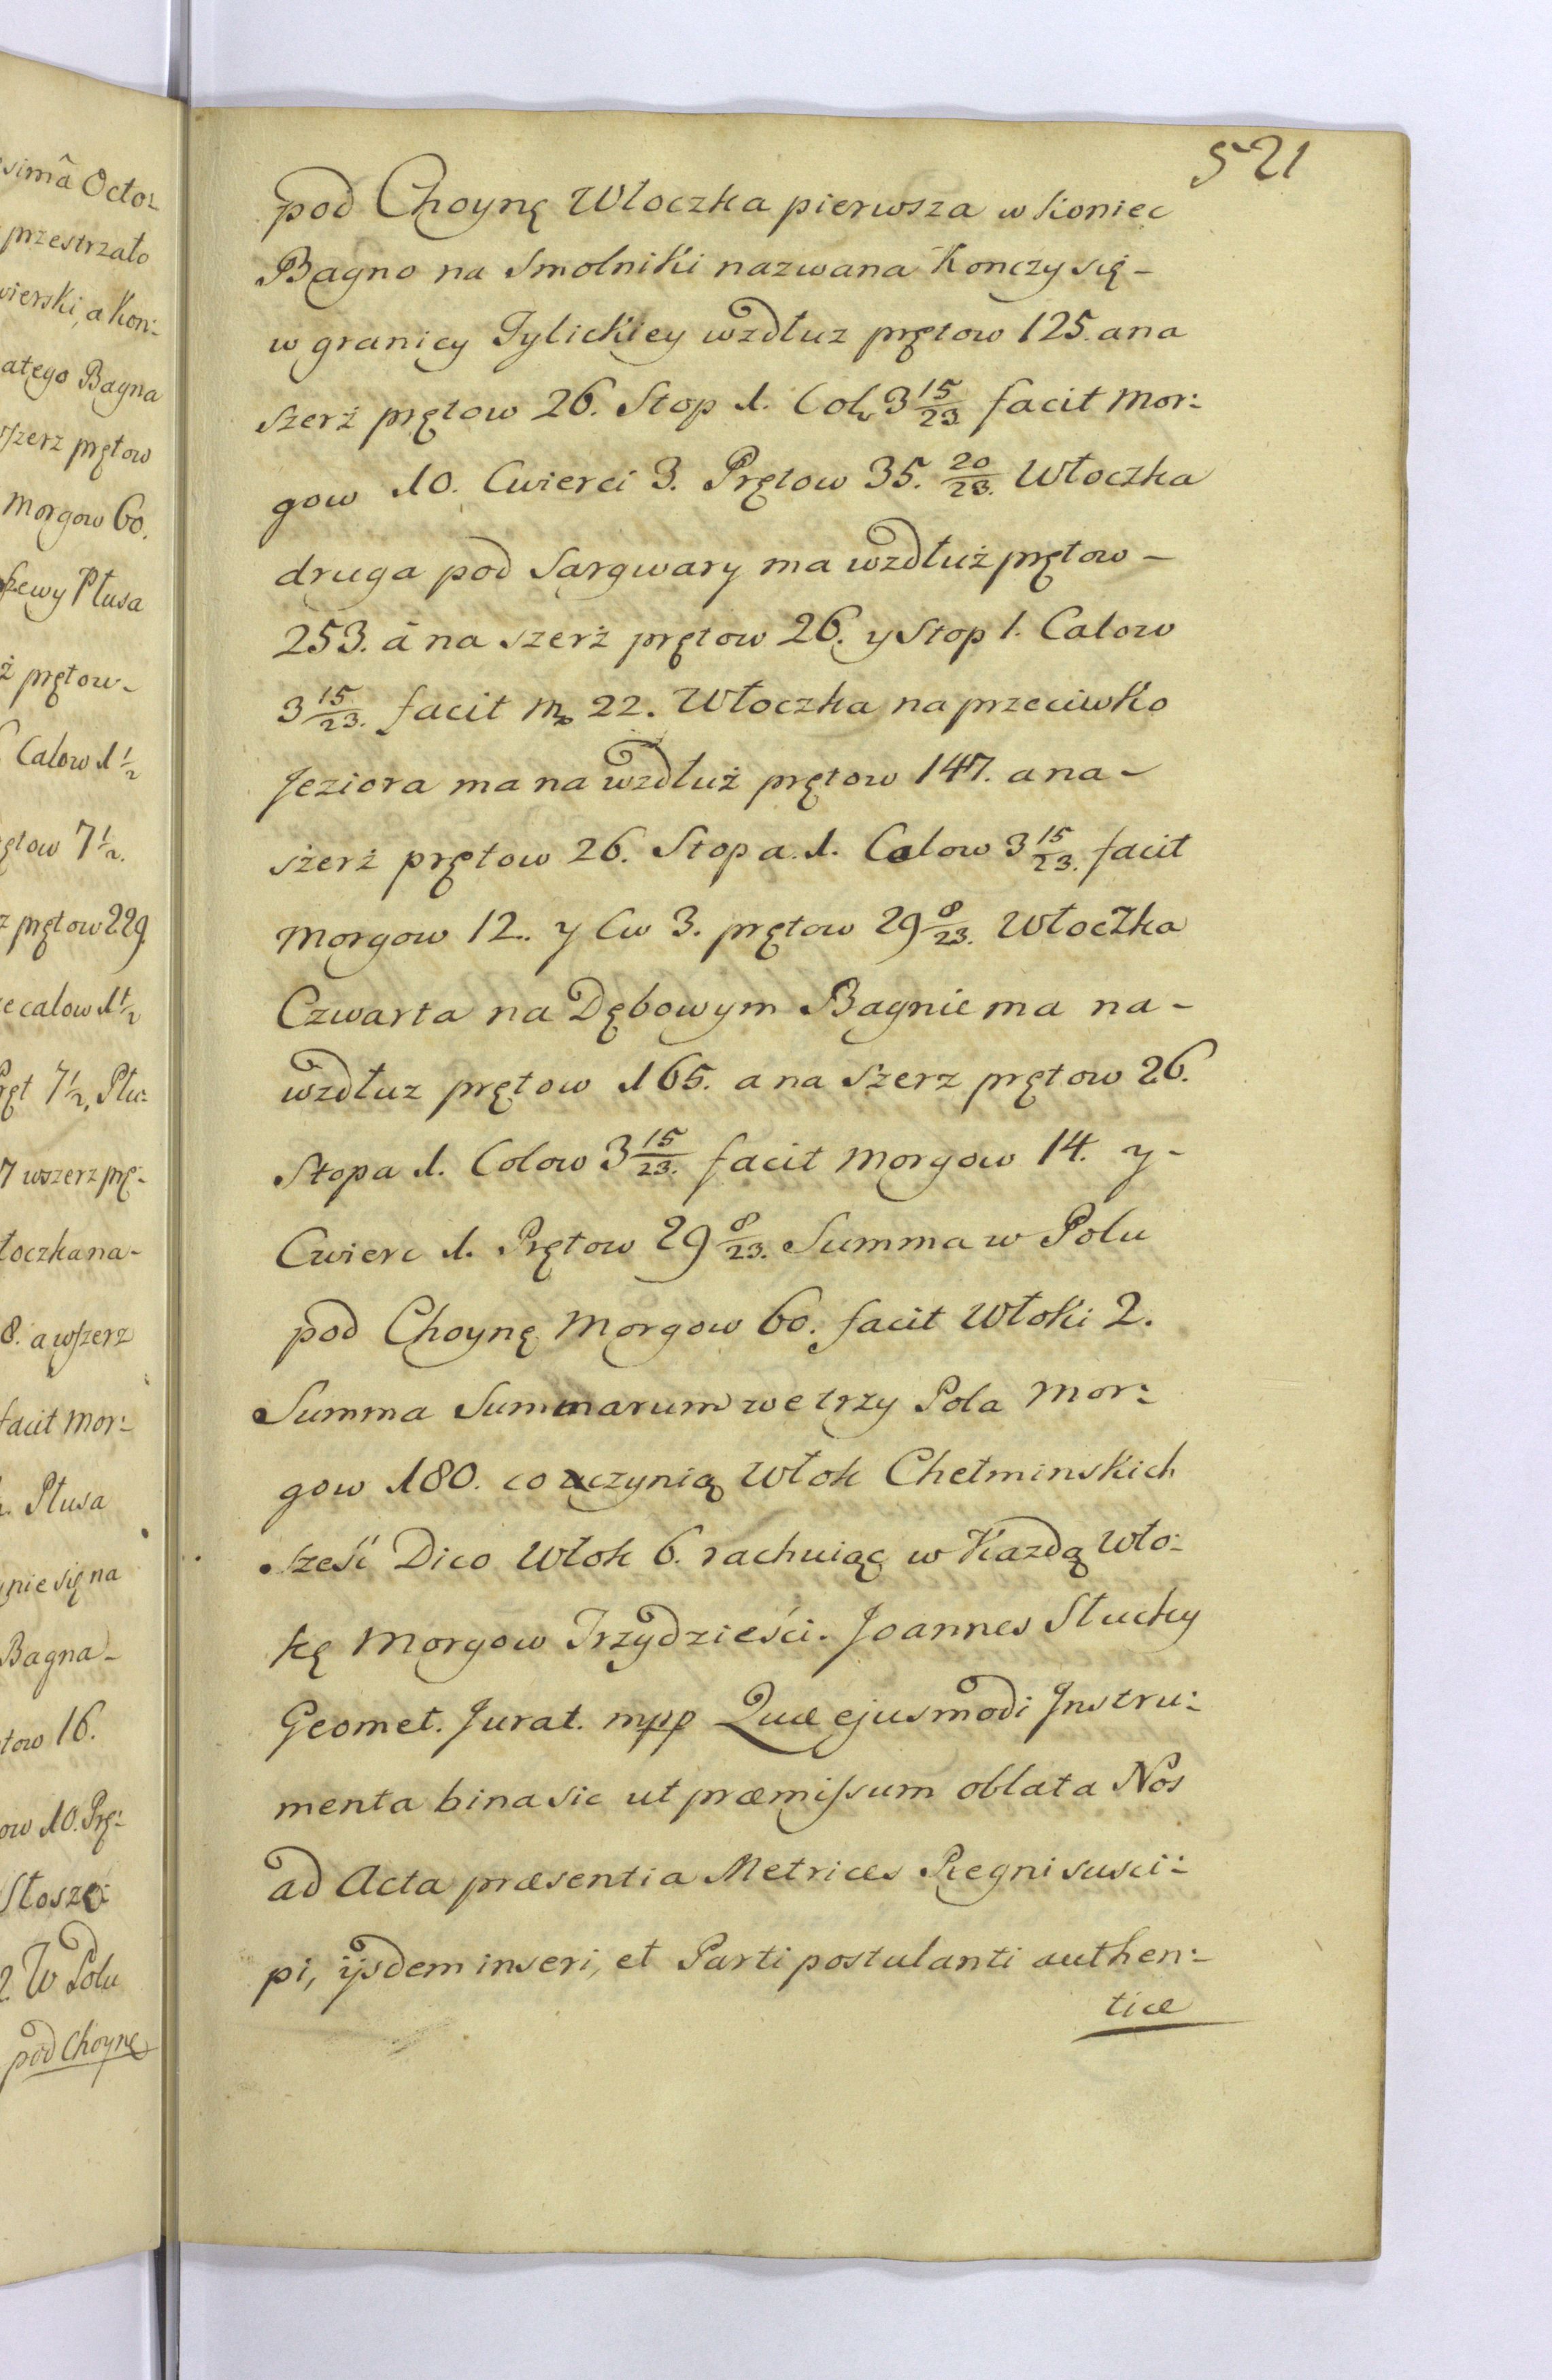 521
pod Choynę Włoczka pierwsza w koniec
Bagno na Smolniki nazwana Konczy się -
w granicy Tylickiey wzdłuz prętow 125. ana
szerż prętow 26. Stop 1. Col 3 15/23 facit Mor:
gow 10. Cwierci 3. Prętow 35. 20/23. Włoczka
druga pod Sargwary ma wzdłuż prętow -
253. á na szerż prętow 26. y Stop 1. Calow
3 15/23. facit M 22. Włoczka na przeciwko
Jeziora ma na wzdłuż prętow 147. ana -
szerż prętow 26. Stopa. 1. Calow 3 15/23. facit
Morgow 12. y Cw 3. prętow 29 8/23. Włoczka
Czwarta na Dębowym Bagnie ma na -
wzdłuz prętow 165. a na szerz prętow 26.
Stopa 1. Colow 3 15/23. facit Morgow 14. y -
Cwierc 1. Prętow 29 8/23. Summa w Polu
pod Choynę Morgow 60. facit Włoki 2.
Summa Summarum we trzy Pola Mor:
gow 180. co uczynią Włok Chełminskich
sześć Dico Włok 6. rachuiąc w Kazdą Wło:
kę Morgow Trzydzieści. Joannes Stucky
Geomet. Jurat. mpp Quæ ejusmodi Instru:
menta bina sic ut præmissum oblata Nos
ad Acta præsentia Metrices Regni susci:
pi, ijsdem inseri, et Parti postulanti authen:
ticæ
simâ Octo:
przestrzało
wierski, a Kon:
atego Bagna
wszerz prętow
Morgow 60.
Płusa
ż prętow -
Calow 1 1/2
ętow 7 1/2.
z prętow 229
e calow 1 1/2
Pręt 7 1/2, Płu:
7 wszerz prę:
łoczka na -
8. a wszerz
facit Mor:
Płusa
nie się na
Bagna -
tow 16.
ow 10. Prę:
2. W Polu
pod Choynę